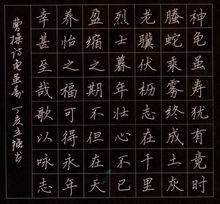 神龟虽寿犹有竟时
螣蛇乘雾终成土灰
老骥伏枥志在千里
烈士暮年壮心不已
盈缩之期不但在天
养怡之福可得永年
幸甚至哉歌以咏志
曹操诗龟虽寿 丁亥 书